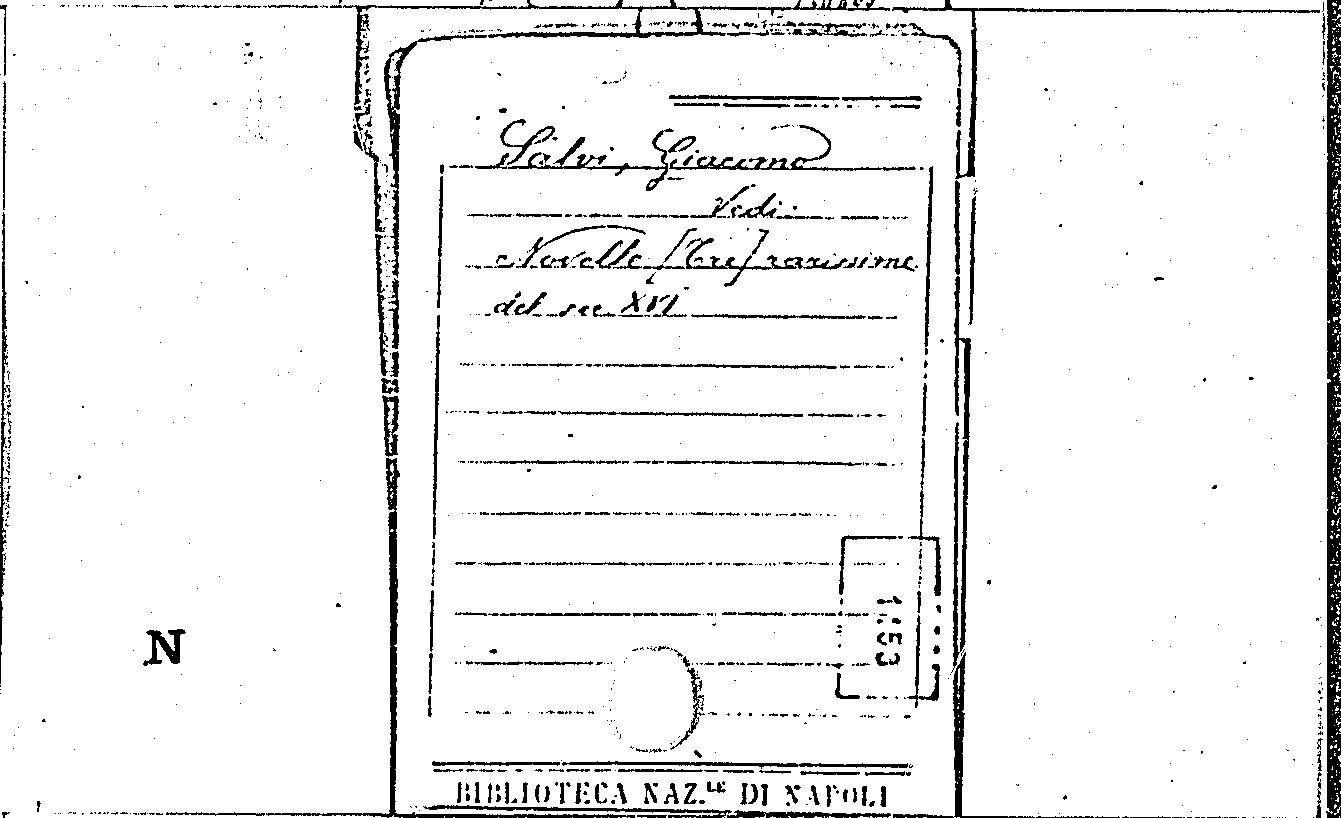 Salvi, Giacomo
Vedi:
Novelle [Tre] rarissime
del sec XVI
N
BIBLIOTECA NAZ.LE DI NAPOLI